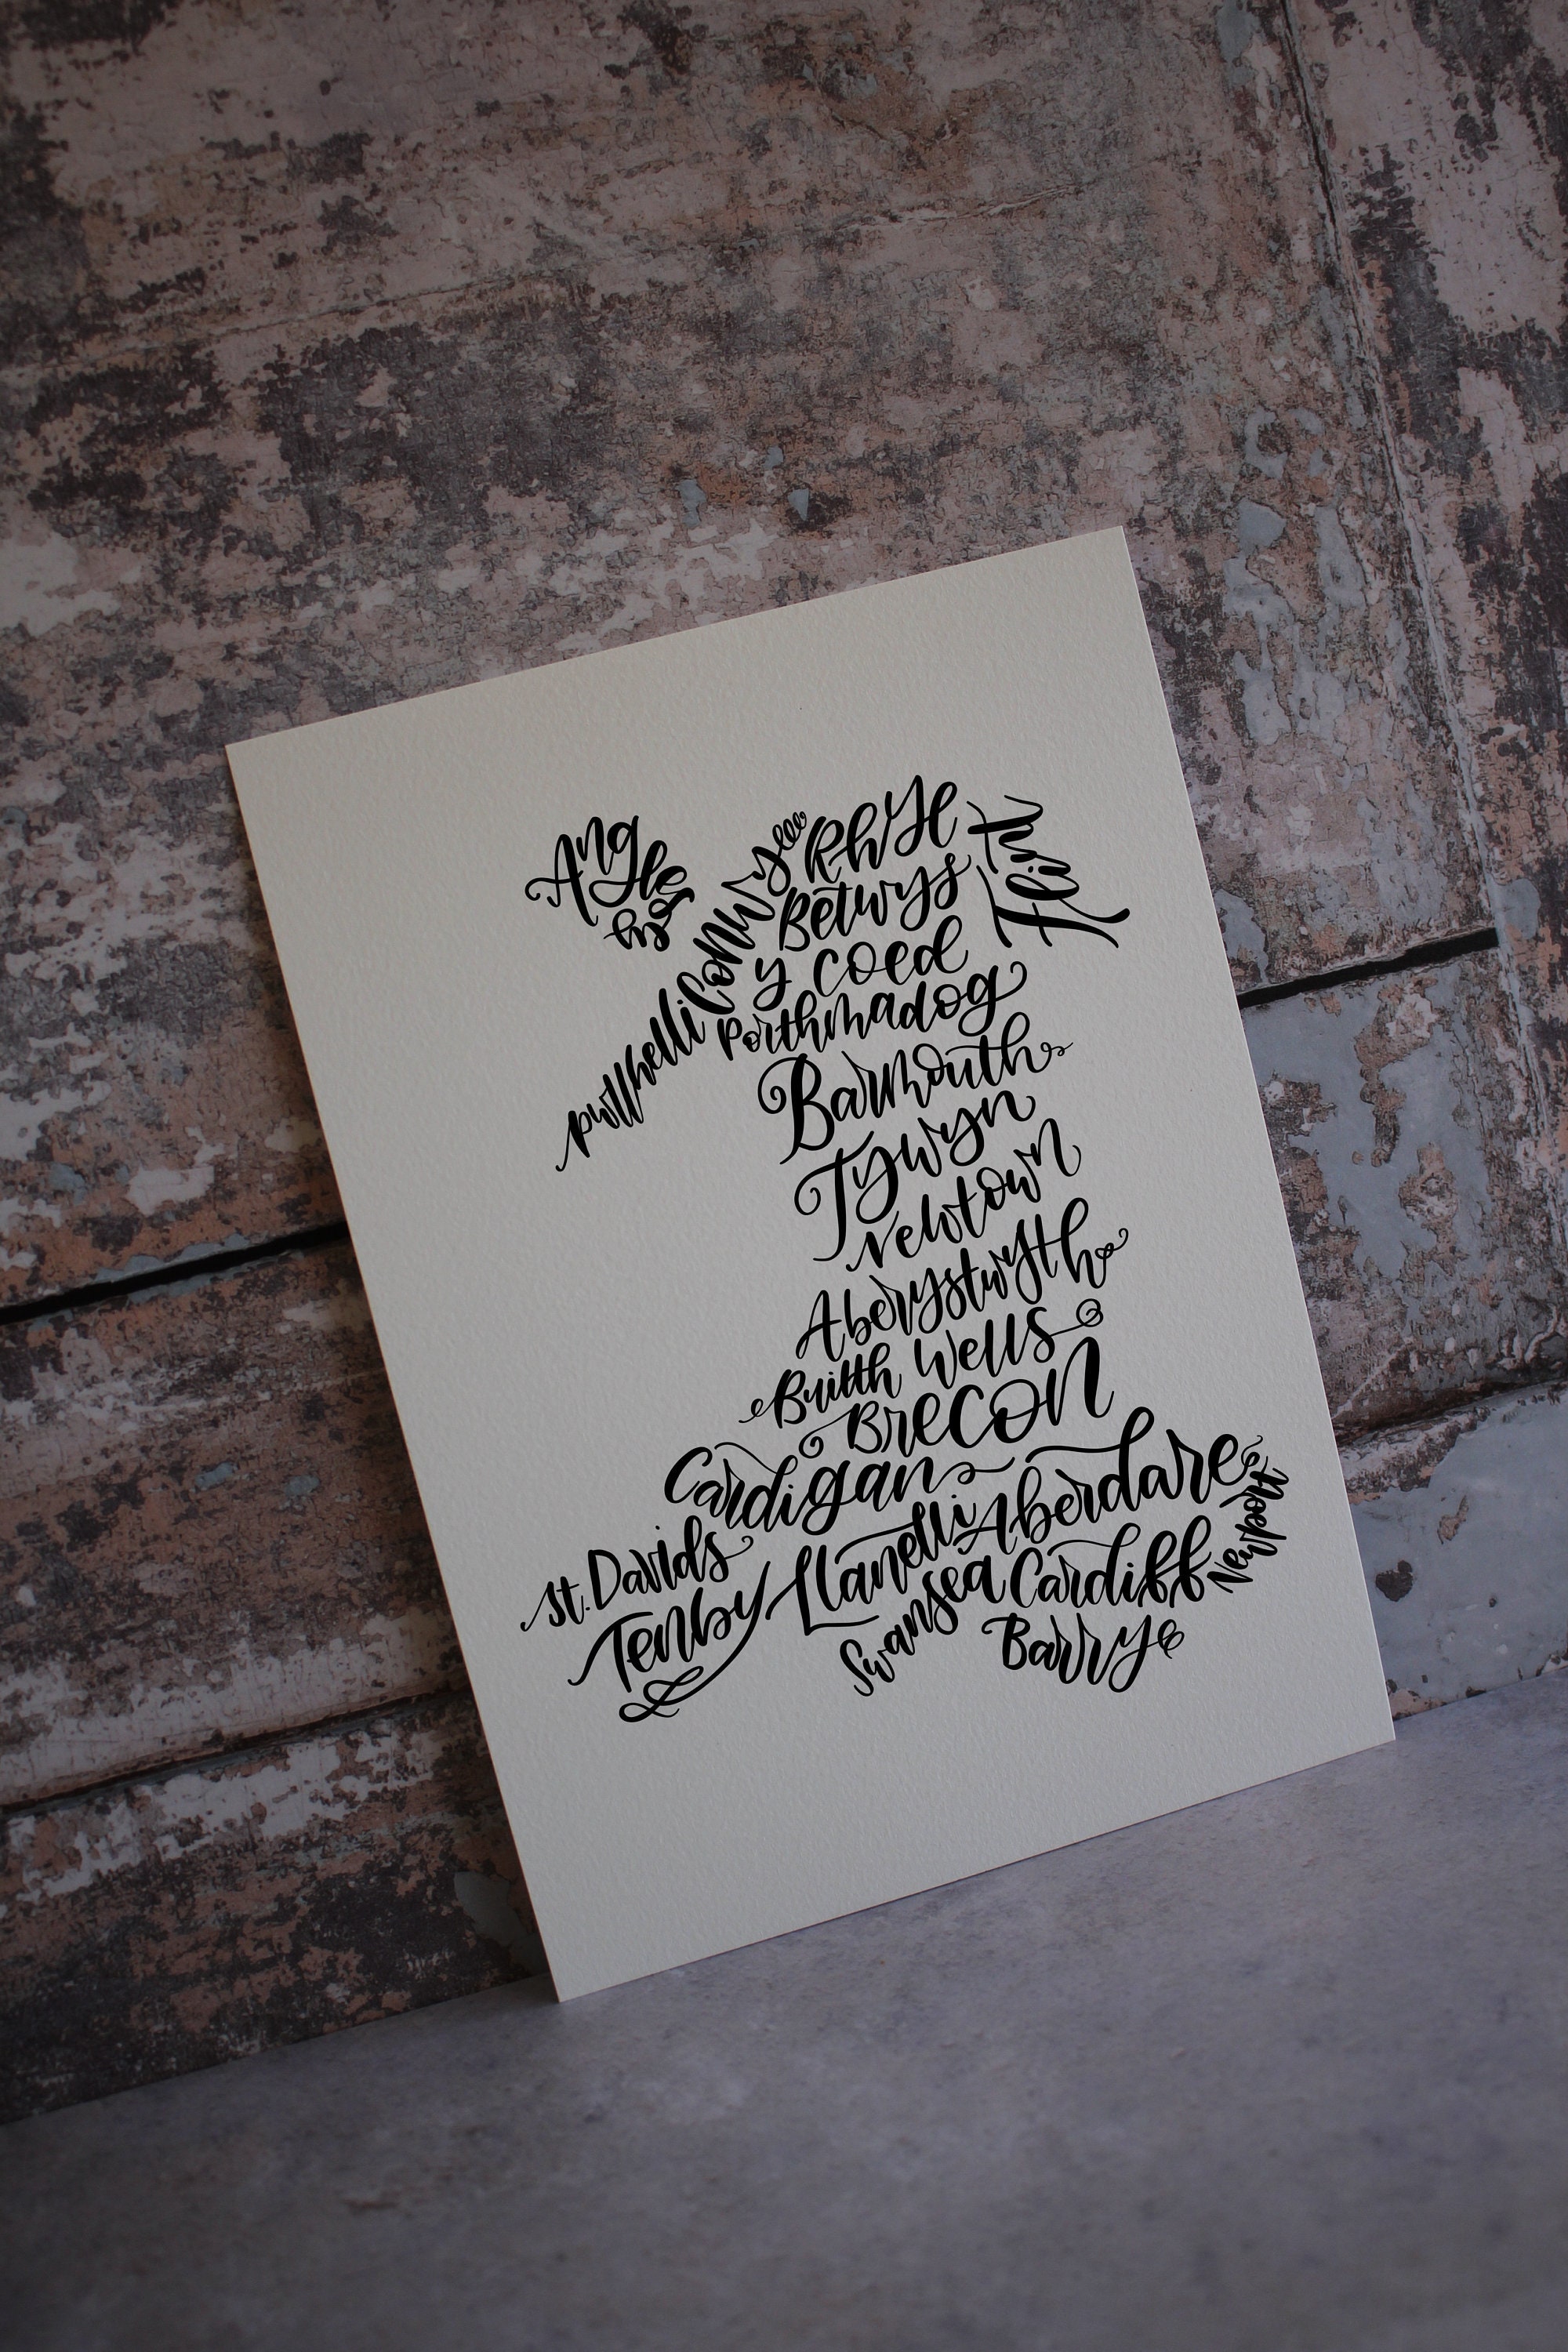 Anglesey
Rhyl
Flint
Conwy
Betwys
y coed
pwllheli
Porthmadog
Barmouth
Tywyn
newtown
Aberystwyth
Builth Wells
Brecon
Cardigan
Aberdare
Newport
St. Davids
Llanelli
Tenby
Swansea
Cardiff
Barry